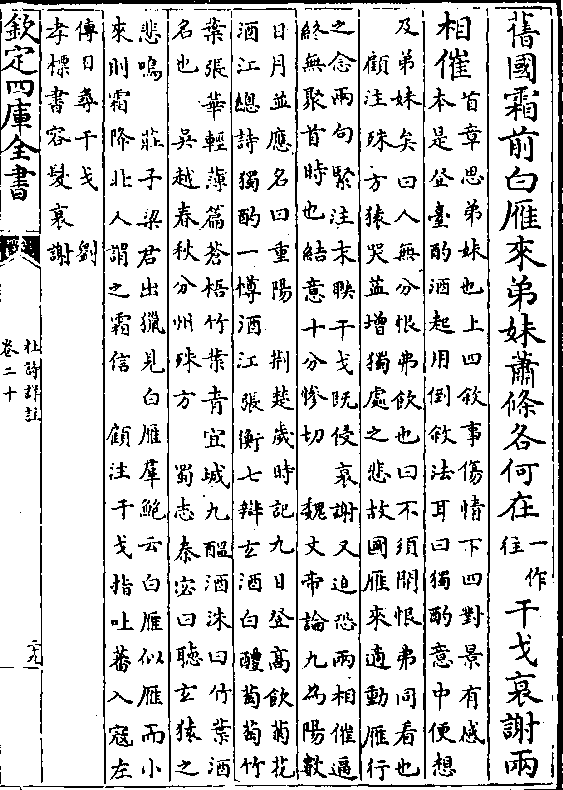 舊國霜前白雁來弟妹蕭條各何在一作
往干戈衰謝兩
相催首章思弟妹也上四敘事傷情下四對景有感
本是登臺酌酒起用倒敘法耳曰獨酌意中便想
及弟妹矣曰人無分恨弗飲也曰不須開恨弗同看也
顧注殊方猿哭益增獨處之悲故國雁來適動雁行
之念兩句緊注末聯干戈既侵衰謝又迫恐兩相催逼
終無聚首時也結意十分慘切 魏文帝論九為陽數
日月並應名曰重陽 荆楚歲時記九日登高飲菊花
酒江總詩獨酌一樽酒江張衡七辯玄酒白醴葡萄竹
葉張華輕薄篇蒼梧竹葉青宜城九醞酒洙曰竹葉酒
名也 吳越春秋分州殊方 蜀志秦宓曰聽玄猿之
悲鳴 莊子梁君出獵見白雁羣鮑云白雁似雁而小
來則霜降北人謂之霜信 顧注干戈指吐蕃入寇左
傳日尋干戈 劉
孝標書容髮衰謝
欽定四庫全書
杜詩詳註
卷二十
二九